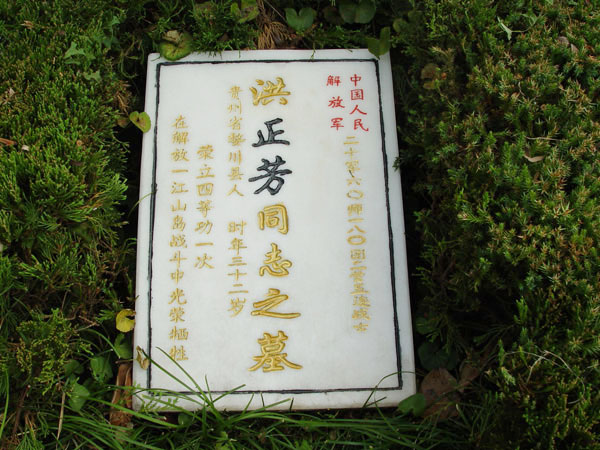 中国人民
解放军
二十军六〇师一八〇团二营五连战士
洪正芳同志之墓
贵州省婺川县人 时年三十二岁
荣立四等功一次
在解放一江山岛战斗中光荣牺牲